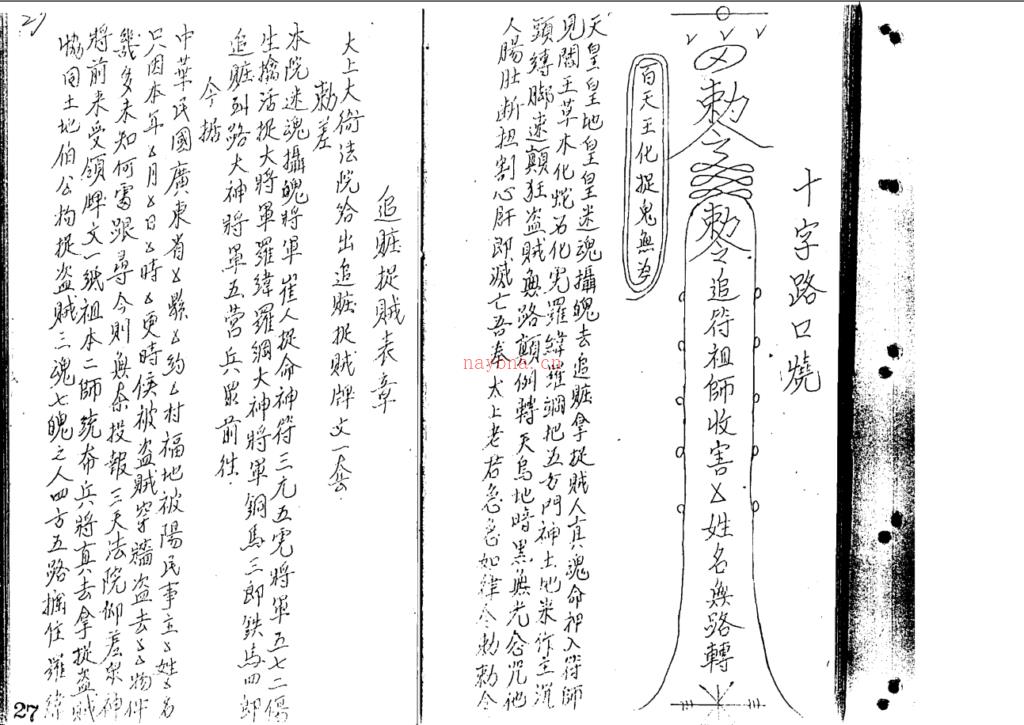 十字路口燒
敕令
敕令追符祖師收害㐅姓名無路轉
百天王化捉鬼無為
天皇皇地皇皇迷魂攝魄去追賍拿捉賊人真魂命押入符師
見閻王草木化蛇石化虎羅緯羅綱把五方門神土地來作主沉
頭縛腳速顛狂盜賊無路顛倒轉天烏地暗黑無光念咒祂
人腸肚斷扭割心肝即滅亡吾奉太上老君急急如律令敕敕令
追賍捉賊表章
太上大倚法院給出追賍捉賊牌文一套
敕差
本院迷魂攝魄將軍崔人捉命神符三元五虎將軍五七二傷
生擒活捉大將軍羅緯羅綱大神將軍銅馬三郎鉄馬四郎
追賍到路大神將軍五营兵眾前往
今據
中華民國廣東省㐅縣㐅約㐅村福地被陽民事主㐅姓㐅名
只因本年㐅月㐅日㐅時㐅更時候被盜賊穿牆盜去㐅㐅物件
幾多未知何處跟尋今則無奈投報三天法院仰差眾神
將前来受領牌文一紙祖本二師統布兵將真去拿捉盜賊
協同土地伯公拘捉盜賊三魂七魄之人四方五路攔住羅緯
27
naybna.cn